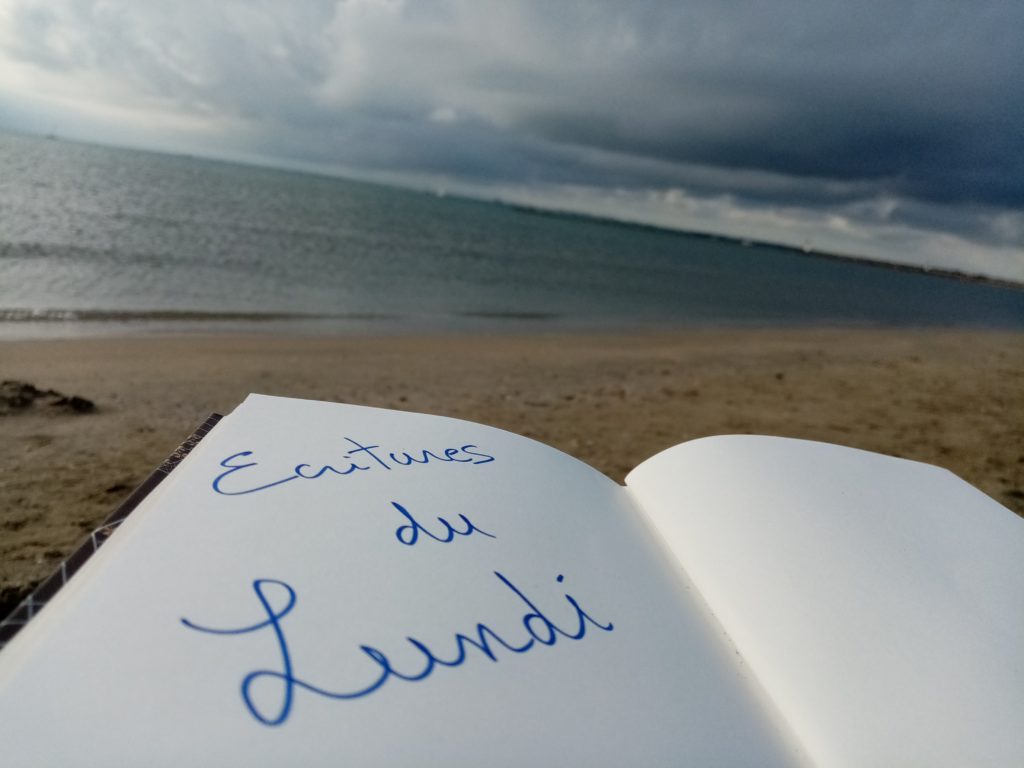 Ecritures
du
Lundi